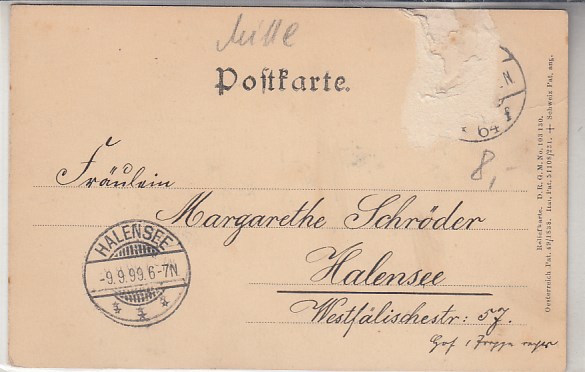 Mille
Postkarte.
N
* 64 f
8,-
Fräulein
Margarethe Schröder
Halensee
Westfälischestr: 57.
Hof 1 Treppe
HALENSEE
-9.9.99.6-7N
Reliefkarte. D. R. G. M. No. 103 130.
Oesterreich. Pat. 49/1838. Ital. Pat. 51106/251. + Schweiz Pat. ang.